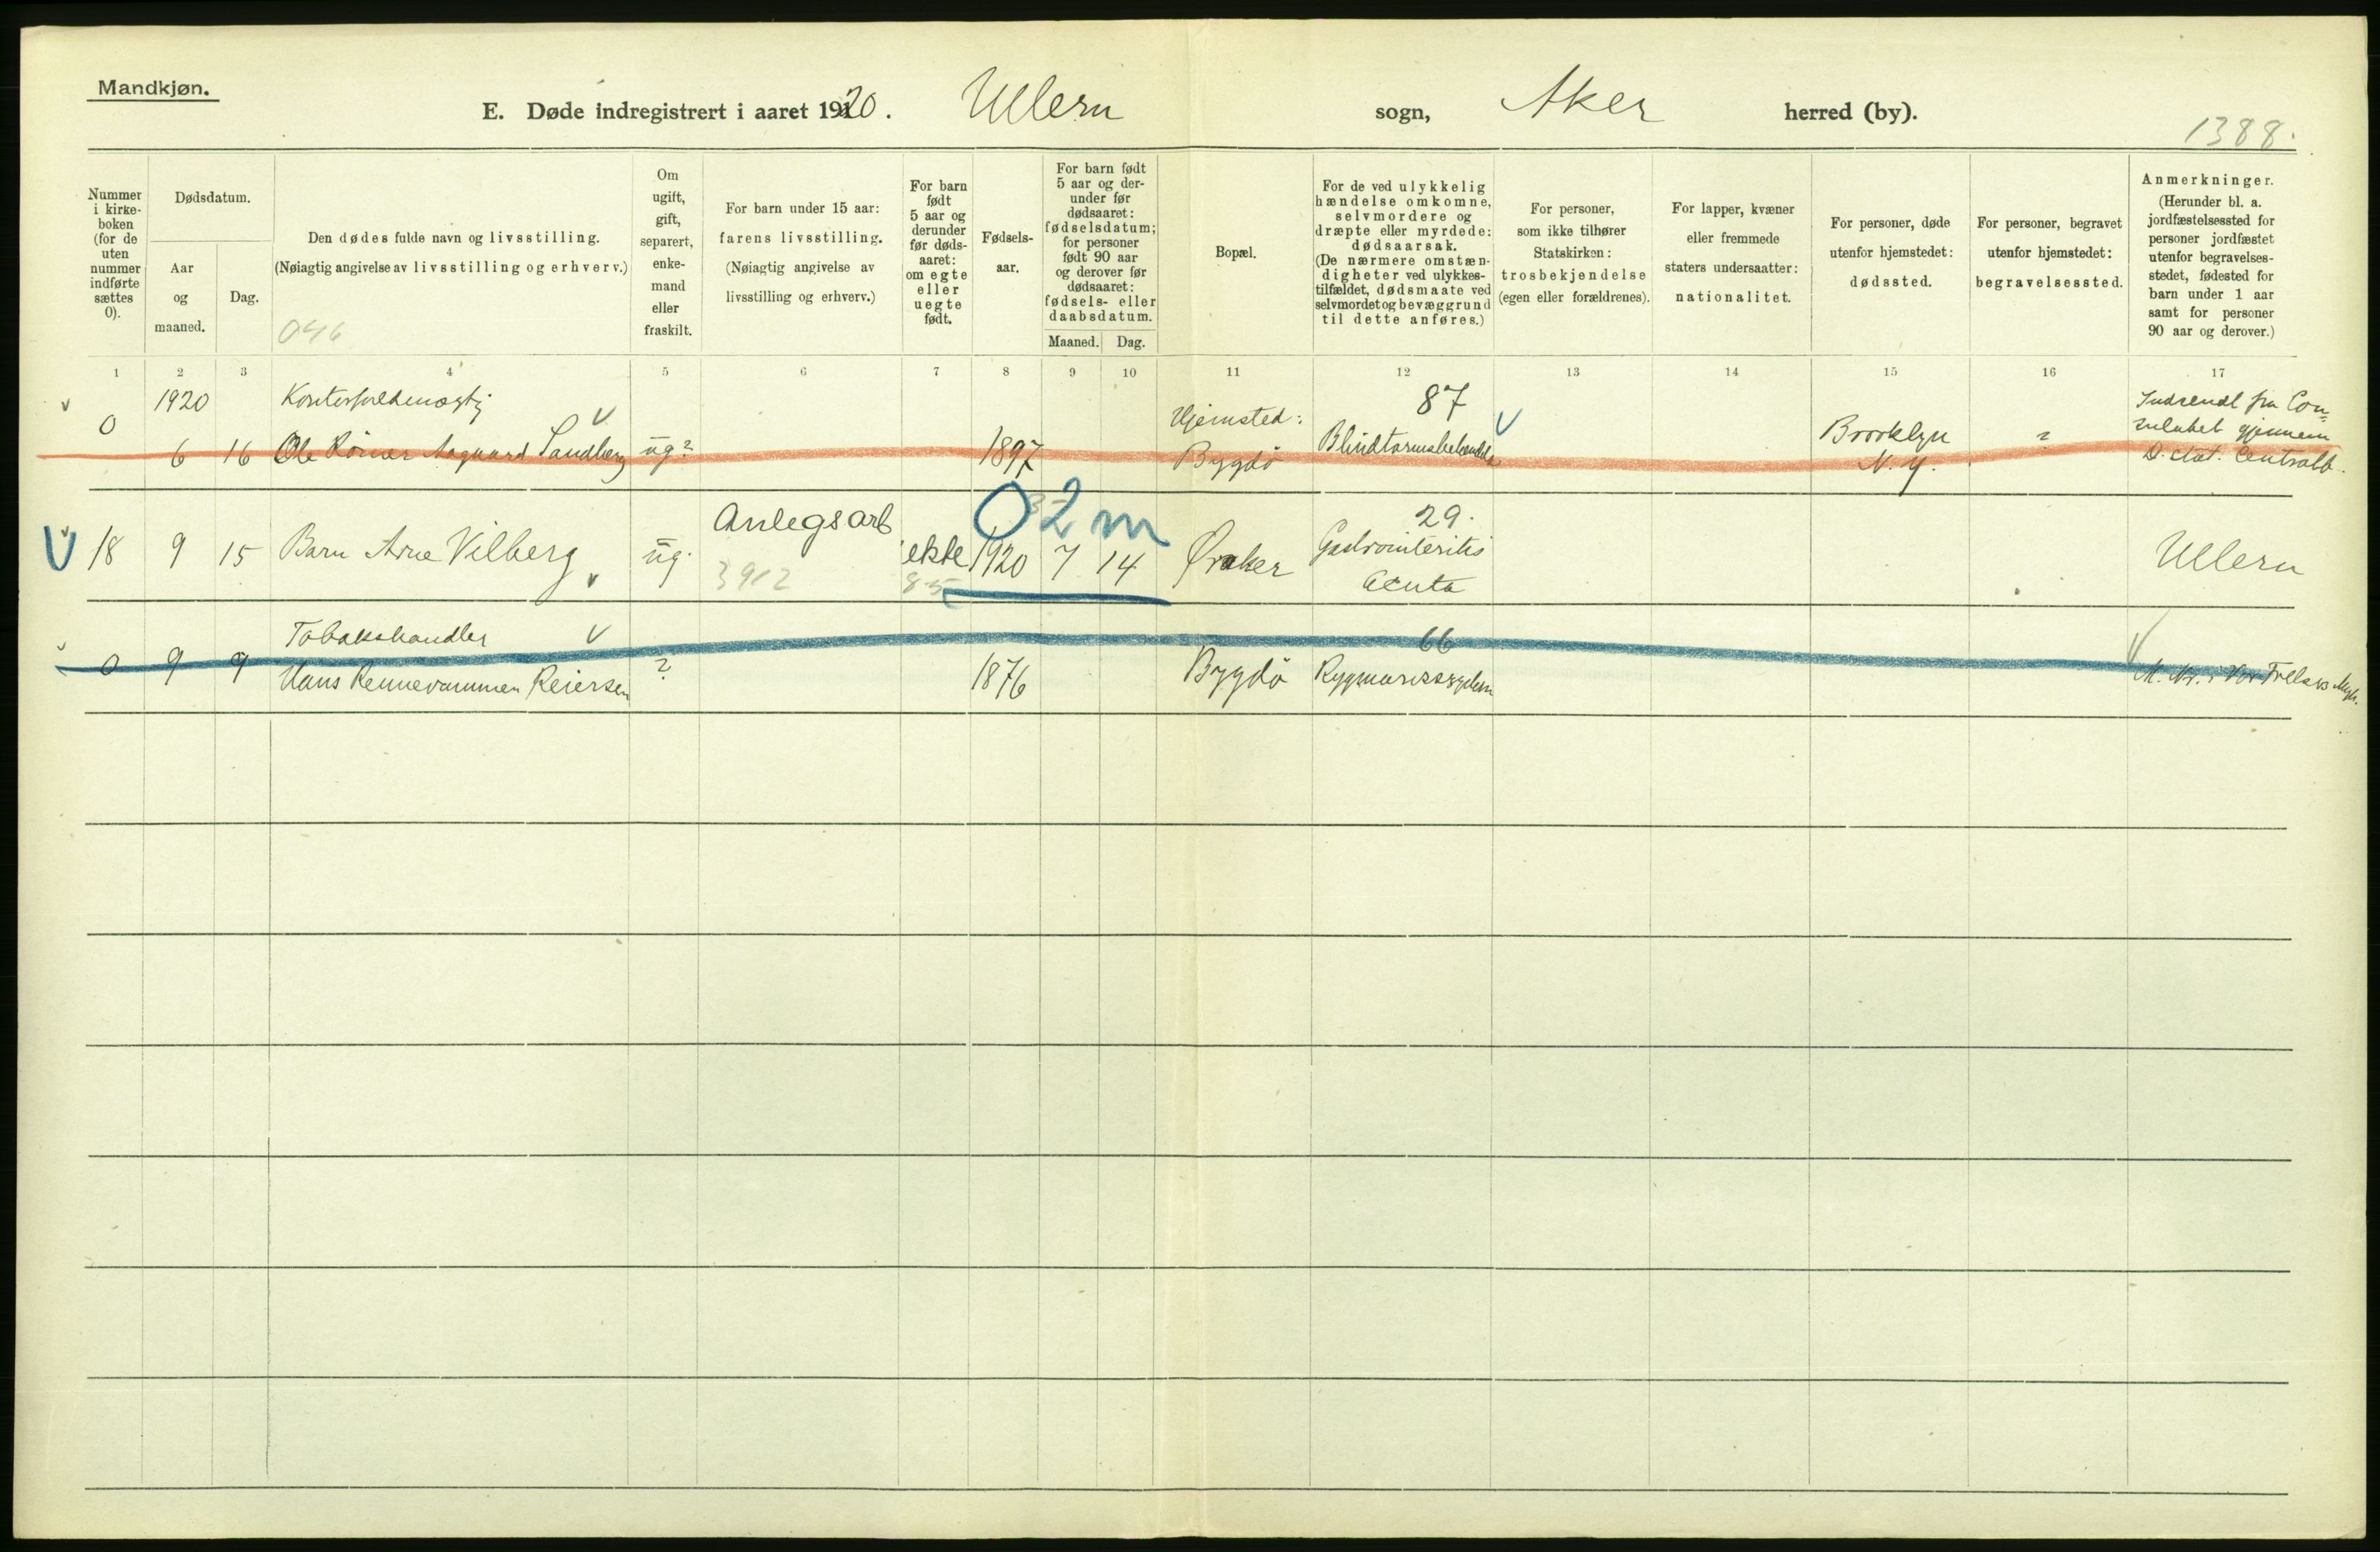 Mandkjøn.
E. Døde indregistrert i aaret 1920. Ullern sogn, Aker herred (by).
1388.
Nummer i kirke-boken (for de uten nummer indførte sættes 0).
Dødsdatum.
Aar og maaned.
Dag.
Den dødes fulde navn og livsstilling.
(Nøiagtig angivelse av livsstilling og erhverv.)
046
Om ugift, gift, separert, enke-mand eller fraskilt.
For barn under 15 aar:
farens livsstilling.
(Nøiagtig angivelse av
livsstilling og erhverv.)
For barn født 5 aar og derunder før døds-aaret: om egte eller uegte født.
Fødsels-aar.
For barn født 5 aar og der-under før dødsaaret: fødselsdatum; for personer født 90 aar og derover før dødsaaret: fødsels- eller daabsdatum.
Maaned. Dag.
Bopæl.
For de ved ulykkelig
hændelse omkomne,
selvmordere og
dræpte eller myrdede:
dødsaarsak.
(De nærmere omstæn-
digheter ved ulykkes-
tilfældet, dødsmaate ved
selvmordet og bevæggrund
til dette anføres.)
For personer,
som ikke tilhører
Statskirken:
trosbekjendelse
(egen eller forældrenes).
For lapper, kvæner
eller fremmede
staters undersaatter:
nationalitet.
For personer, døde
utenfor hjemstedet:
dødssted.
For personer, begravet
utenfor hjemstedet:
begravelsessted.
Anmerkninger.
(Herunder bl. a.
jordfæstelsessted for
personer jordfæstet
utenfor begravelses-
stedet, fødested for
barn under 1 aar
samt for personer
90 aar og derover.)
1 2 3 4 5 6 7 8 9 10 11 12 13 14 15 16 17
1920 87
0 6 16 Ole Sandberg ug? 1897 Hjemsted: Bygdö Brooklyn N.Y. ?
Indsendt fra Con-
sulatet gjennem
D. stat. Centralb.
02 m
Anlegsarb 29.
18 9 15 Barn Arne Vilberg ug. ekte 1920 7 14 Øraker Gastrointeritis Acuta Ullern
3912 85
Tobakshandler 66
0 9 9 Hans Rennevammen Reiersen ? 1876 Bygdö Rygmarvssygdom